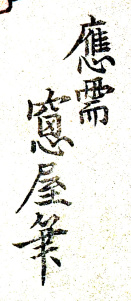 應需
窻屋筆